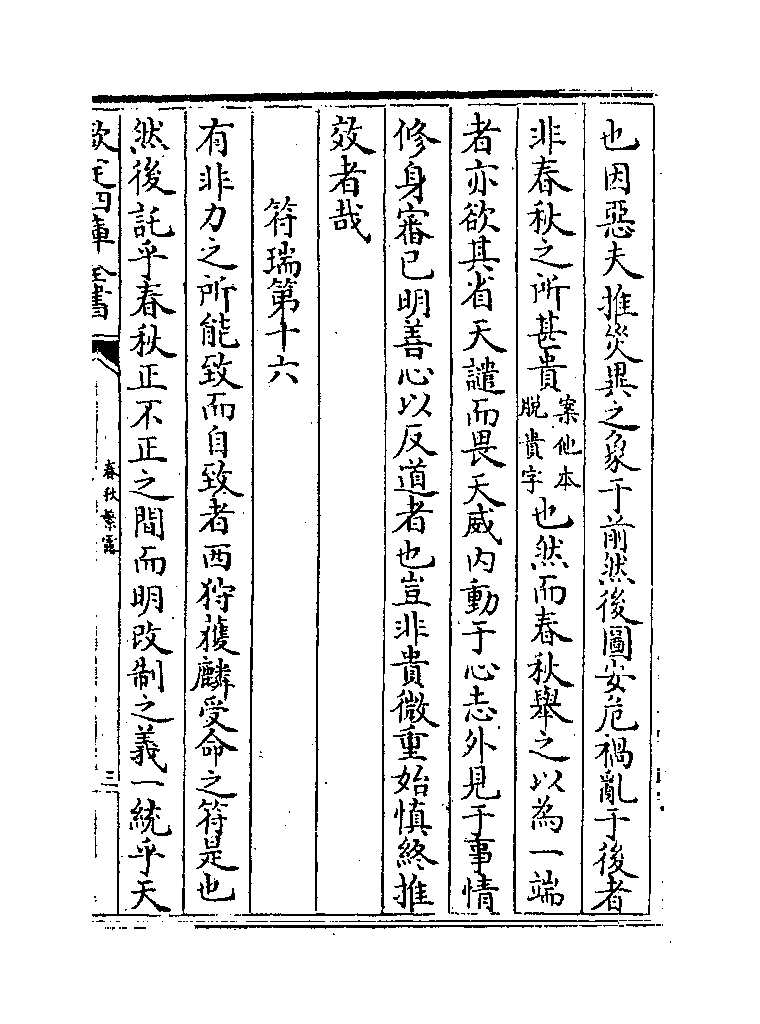 也因惡夫推災異之象于前然後圖安危禍亂于後者
非春秋之所甚貴案他本脫貴字也然而春秋舉之以為一端
者亦欲其省天譴而畏天威内動于心志外見于事情
修身審已明善心以反道者也豈非貴微重始慎終推
效者哉
符瑞第十六
有非力之所能致而自致者西狩獲麟受命之符是也
然後託乎春秋正不正之間而明改制之義一統乎天
欽定四庫全書
春秋繁露
三